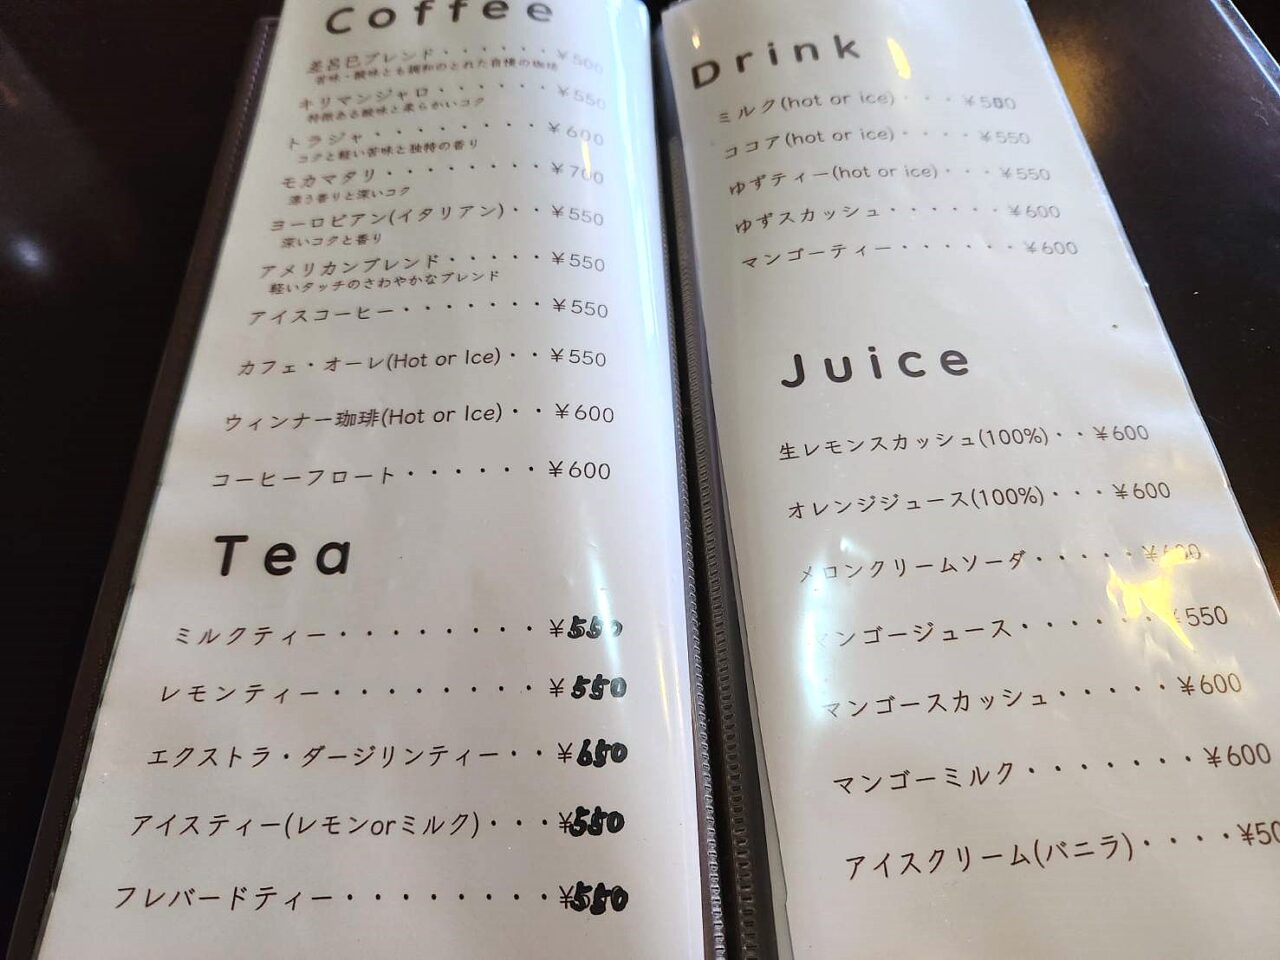 Coffee
ブレンド・・・・・・¥500
苦味・酸味とも調和のとれた自慢の珈琲
キリマンジャロ・・・・・・¥550
特徴ある酸味と柔らかいコク
トラジャ・・・・・・・・¥600
コクと軽い苦味と独特の香り
モカマタリ・・・・・・・・¥700
漂う香りと深いコク
ヨーロピアン(イタリアン)・・¥550
深いコクと香り
アメリカンブレンド・・・・・¥550
軽いタッチのさわやかなブレンド
アイスコーヒー・・・・・・・¥550
カフェ・オーレ(Hot or Ice)・・¥550
ウィンナー珈琲(Hot or Ice)・・¥600
コーヒーフロート・・・・・・¥600
Tea
ミルクティー・・・・・・・・¥550
レモンティー・・・・・・・・¥550
エクストラ・ダージリンティー・・¥650
アイスティー(レモンorミルク)・・・¥550
フレバードティー・・・・・・・・¥550
Drink
ミルク(hot or ice)・・・¥500
ココア(hot or ice)・・・・¥550
ゆずティー(hot or ice)・・・¥550
ゆずスカッシュ・・・・・・¥600
マンゴーティー・・・・・・¥600
Juice
生レモンスカッシュ(100%)・・¥600
オレンジジュース(100%)・・・¥600
メロンクリームソーダ・・・・・¥600
マンゴージュース・・・・・・・¥550
マンゴースカッシュ・・・・・¥600
マンゴーミルク・・・・・・・¥600
アイスクリーム(バニラ)・・・・¥50